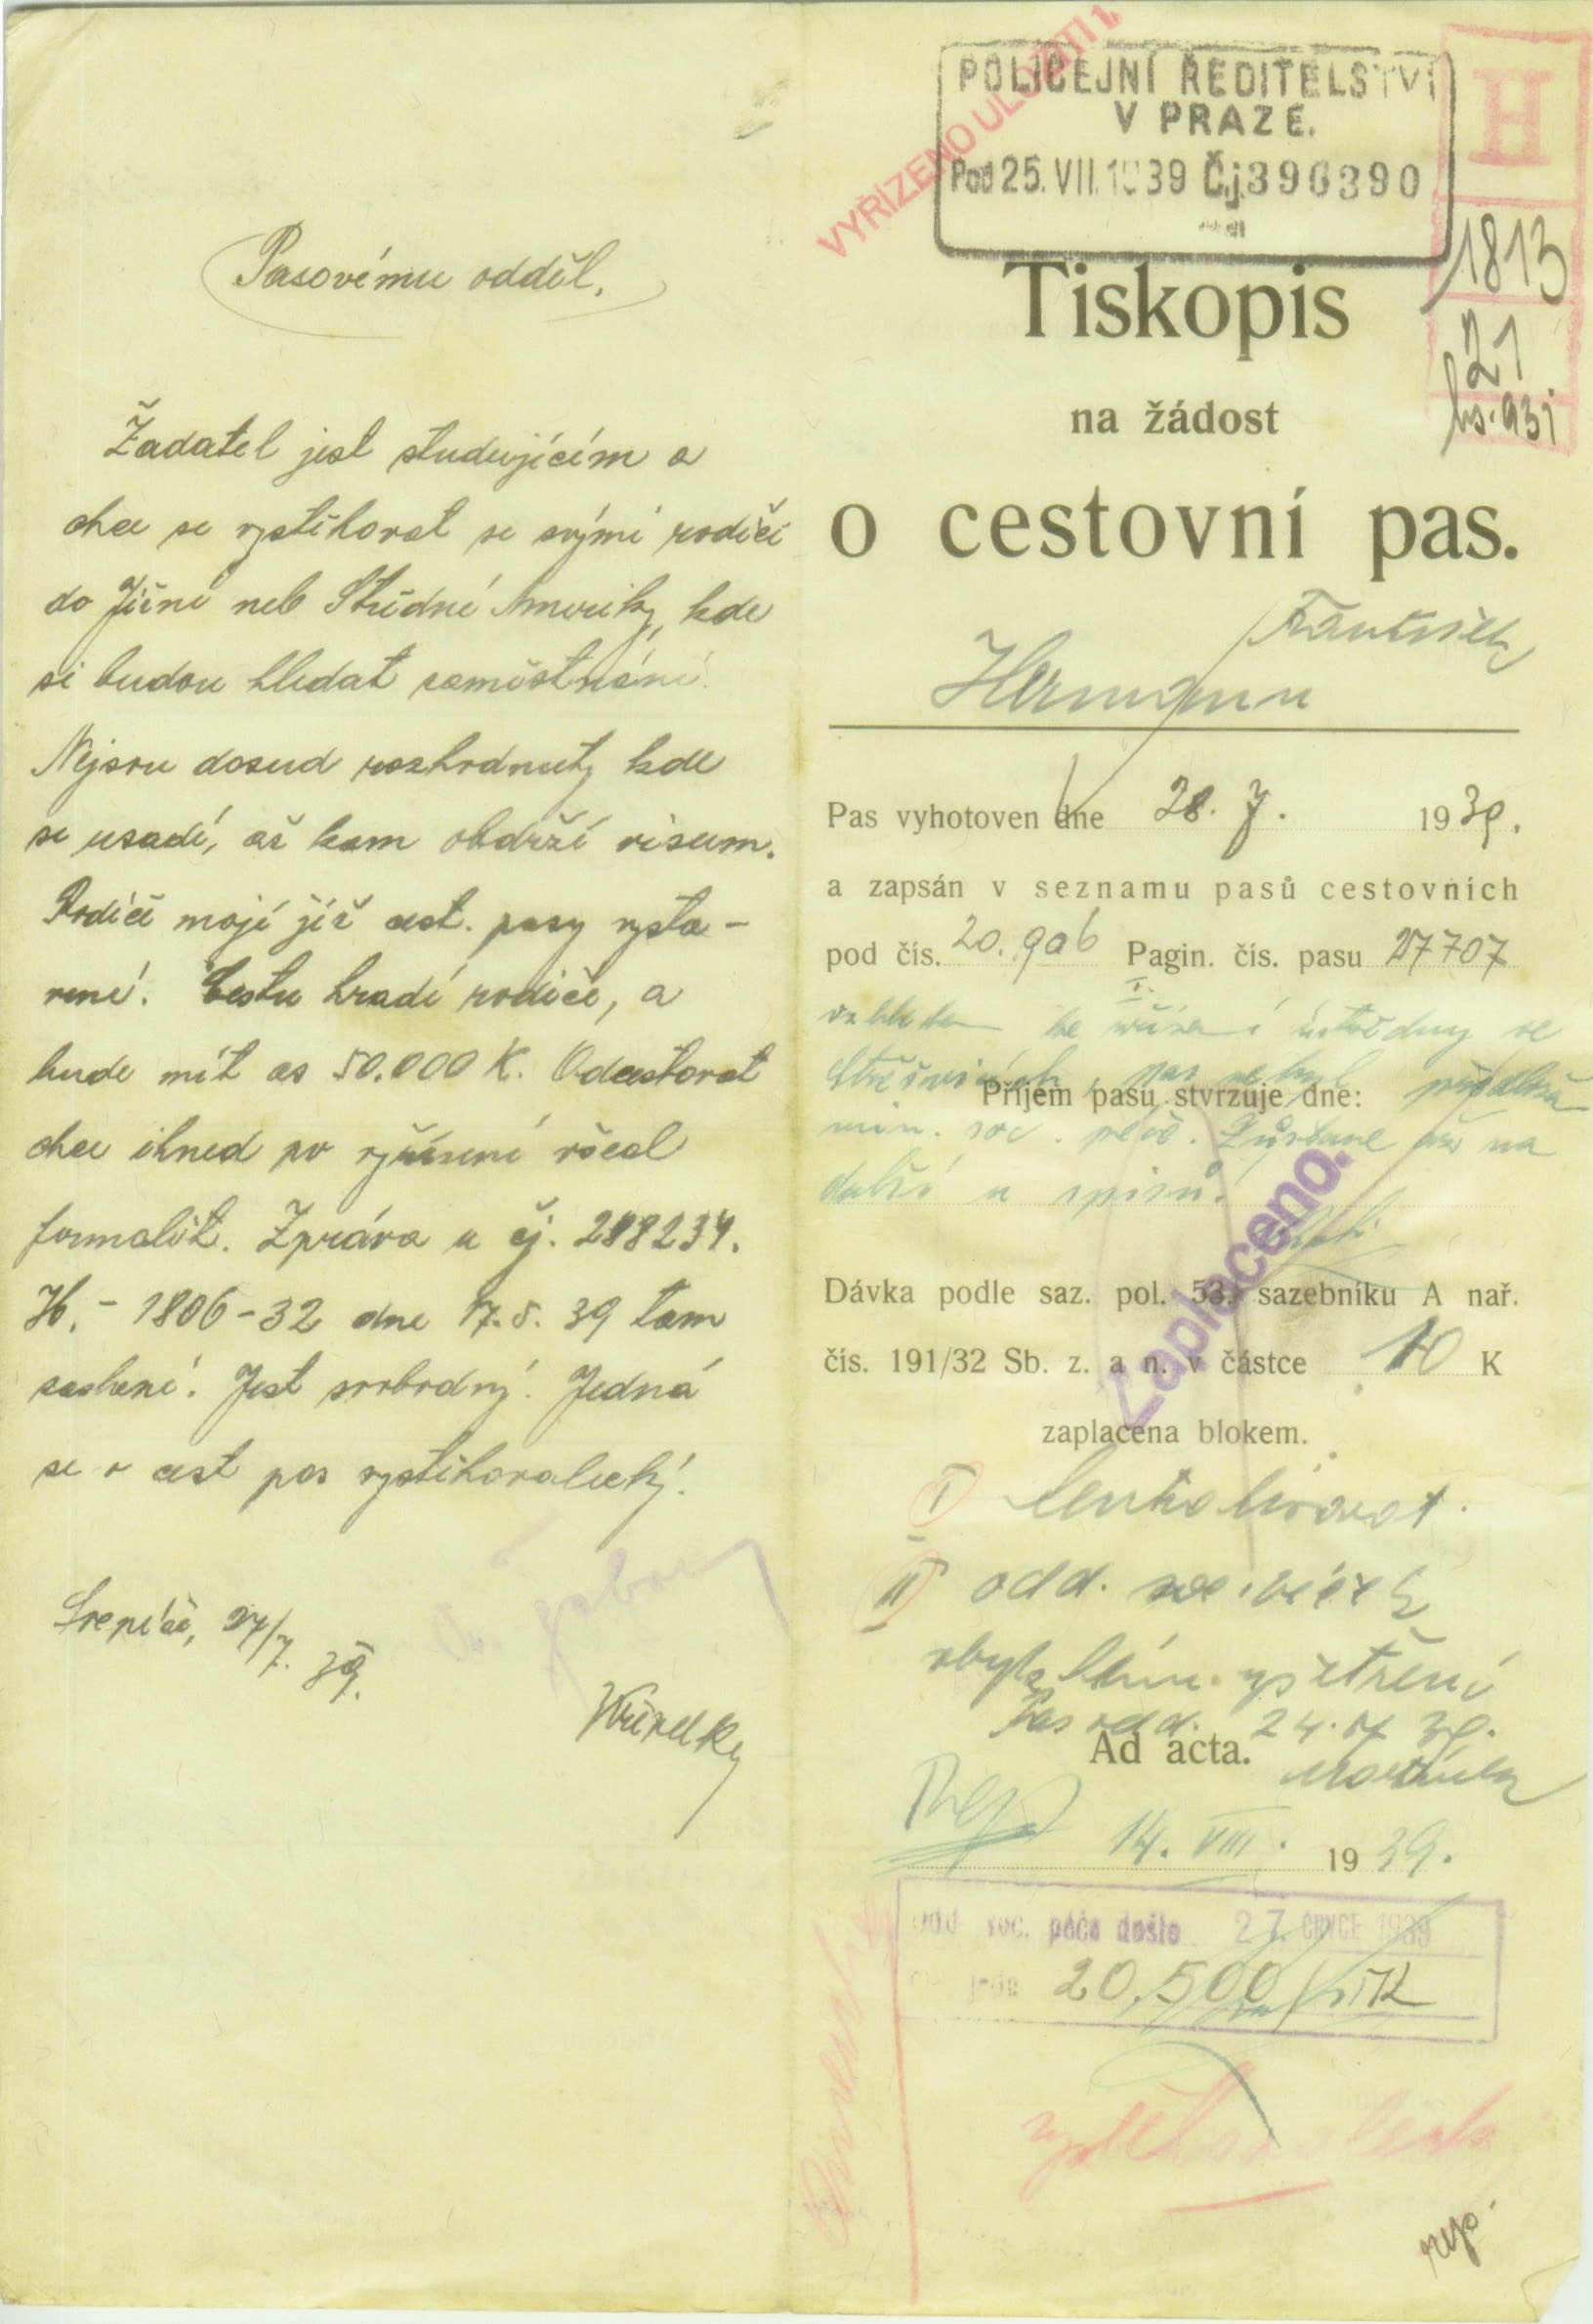 Pasovému odděl.
Žadatel jest studujícím a
chce se vystěhovat se svými rodiči
do Jižní neb Střední Ameriky, kde
si budou hledat zaměstnání.
Nejsou dosud rozhodnuty kde
se usadí, až kam obdrží visum.
Rodiče mají již cest. pasy vysta-
vené. Cestu hradí rodiče, a
bude mít as 50.000 K. Odcestovat
chce ihned po vyřízení všech
formalit. Zpráva u čj. 288234.
H. - 1806-32 dne 17.5. 39 tam
zaslané. Jest svobodný. Jedná
se o cest pas vystěhovalecký.
27/7. 39.
VYŘÍZENO ULOŽITI
POLICEJNÍ ŘEDITELSTVÍ
V PRAZE.
Pod 25. VII. 1939 Čj 396390
H
1813
21
Tiskopis
na žádost
o cestovní pas.
František
Hermann
Pas vyhotoven dne 28. 7. 1939.
a zapsán v seznamu pasů cestovních
pod čís. 20.906 Pagin. čís. pasu 27707
vzhledem ke zřízení ústředny ve
Střešovicích, pas nebyl
Příjem pasu stvrzuje dne:
min. soc. péče. na
další u spisů.
Zaplaceno.
Dávka podle saz. pol. 53. sazebníku A nař.
čís. 191/32 Sb. z. a n. v částce 10 K
zaplacena blokem.
I
II odd.
vyšetření
Pas odd. 24. 7. 39.
Ad acta.
14. VIII. 1939.
Odd soc. péče došlo 27. ČRVCE 1939
20.500